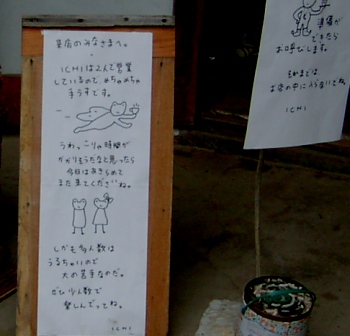 来店のみなさまへ。
ICHIは2人で営業
しているので、めちゃめちゃ
まうすです。
うわっ、こりゃ時間が
かかりそうだなと思ったら
今日はあきらめて
また来てくださいね。
しかも多人数は
うるちゃいので
大の苦手なのだ。
ぜひ少人数で
楽しんでってね。
ICHI
準備が
できたら
お呼びします。
それまでは
お店の中に入らないでね。
ICHI